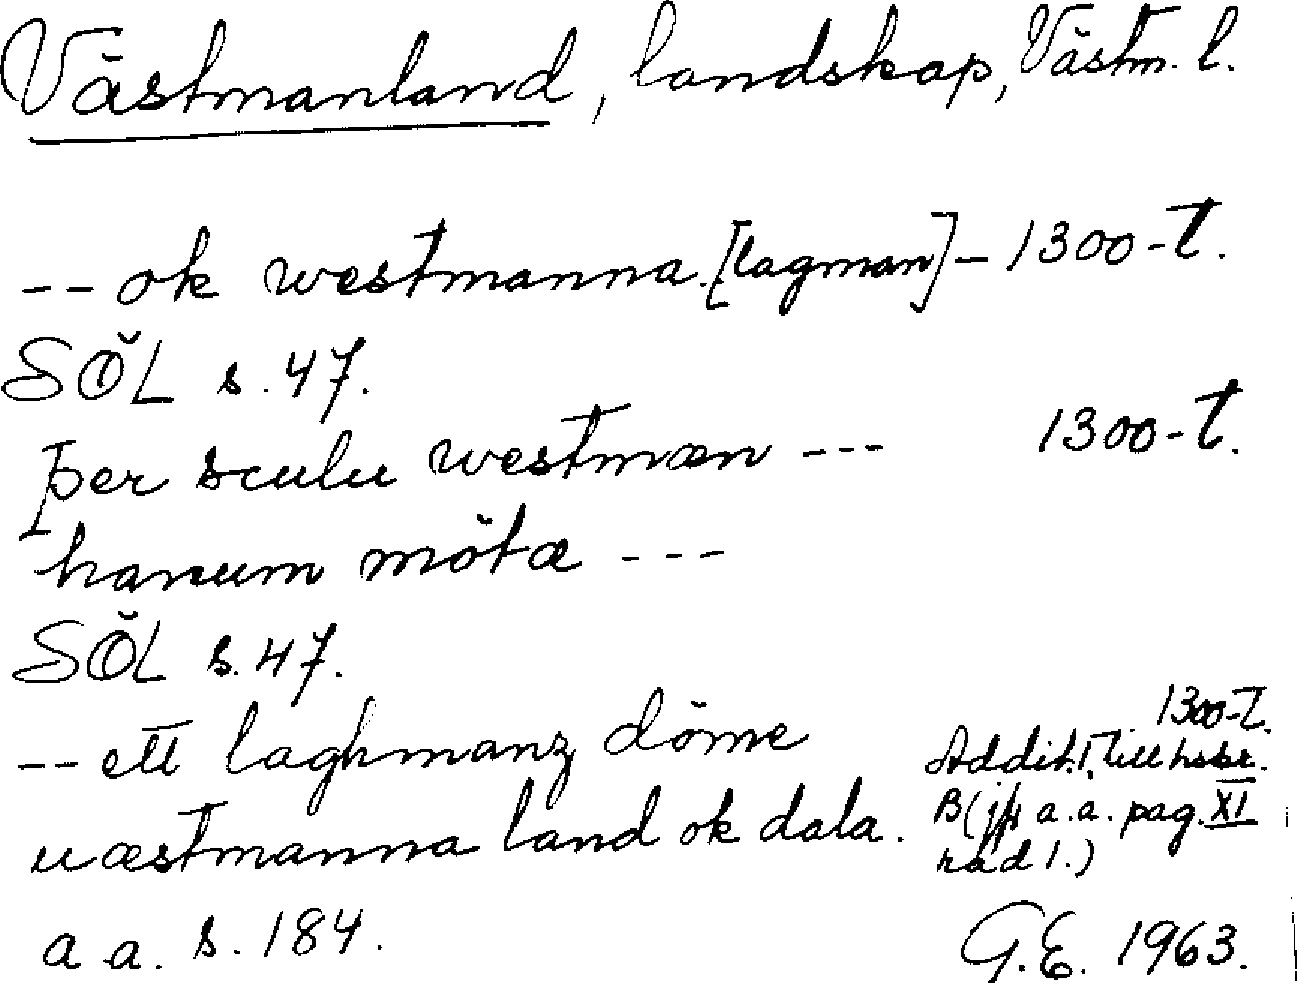 Västmanland, landskap, Västm. l.
-- ok westmanna [lagman] - 1300-t.
SÖL s. 47.
þer sculu westmæn --- 1300-t.
hanum mötæ ---
SÖL s. 47.
-- ett laghmanz döme
uæstmanna land ok dala.
1300-t.
Addit. 1. till hskr.
B (jfr a.a. pag. XI
rad 1.)
a.a. s. 184.
G.E. 1963.